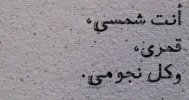 أنت شمسي،
قمري،
وكل نجومي.